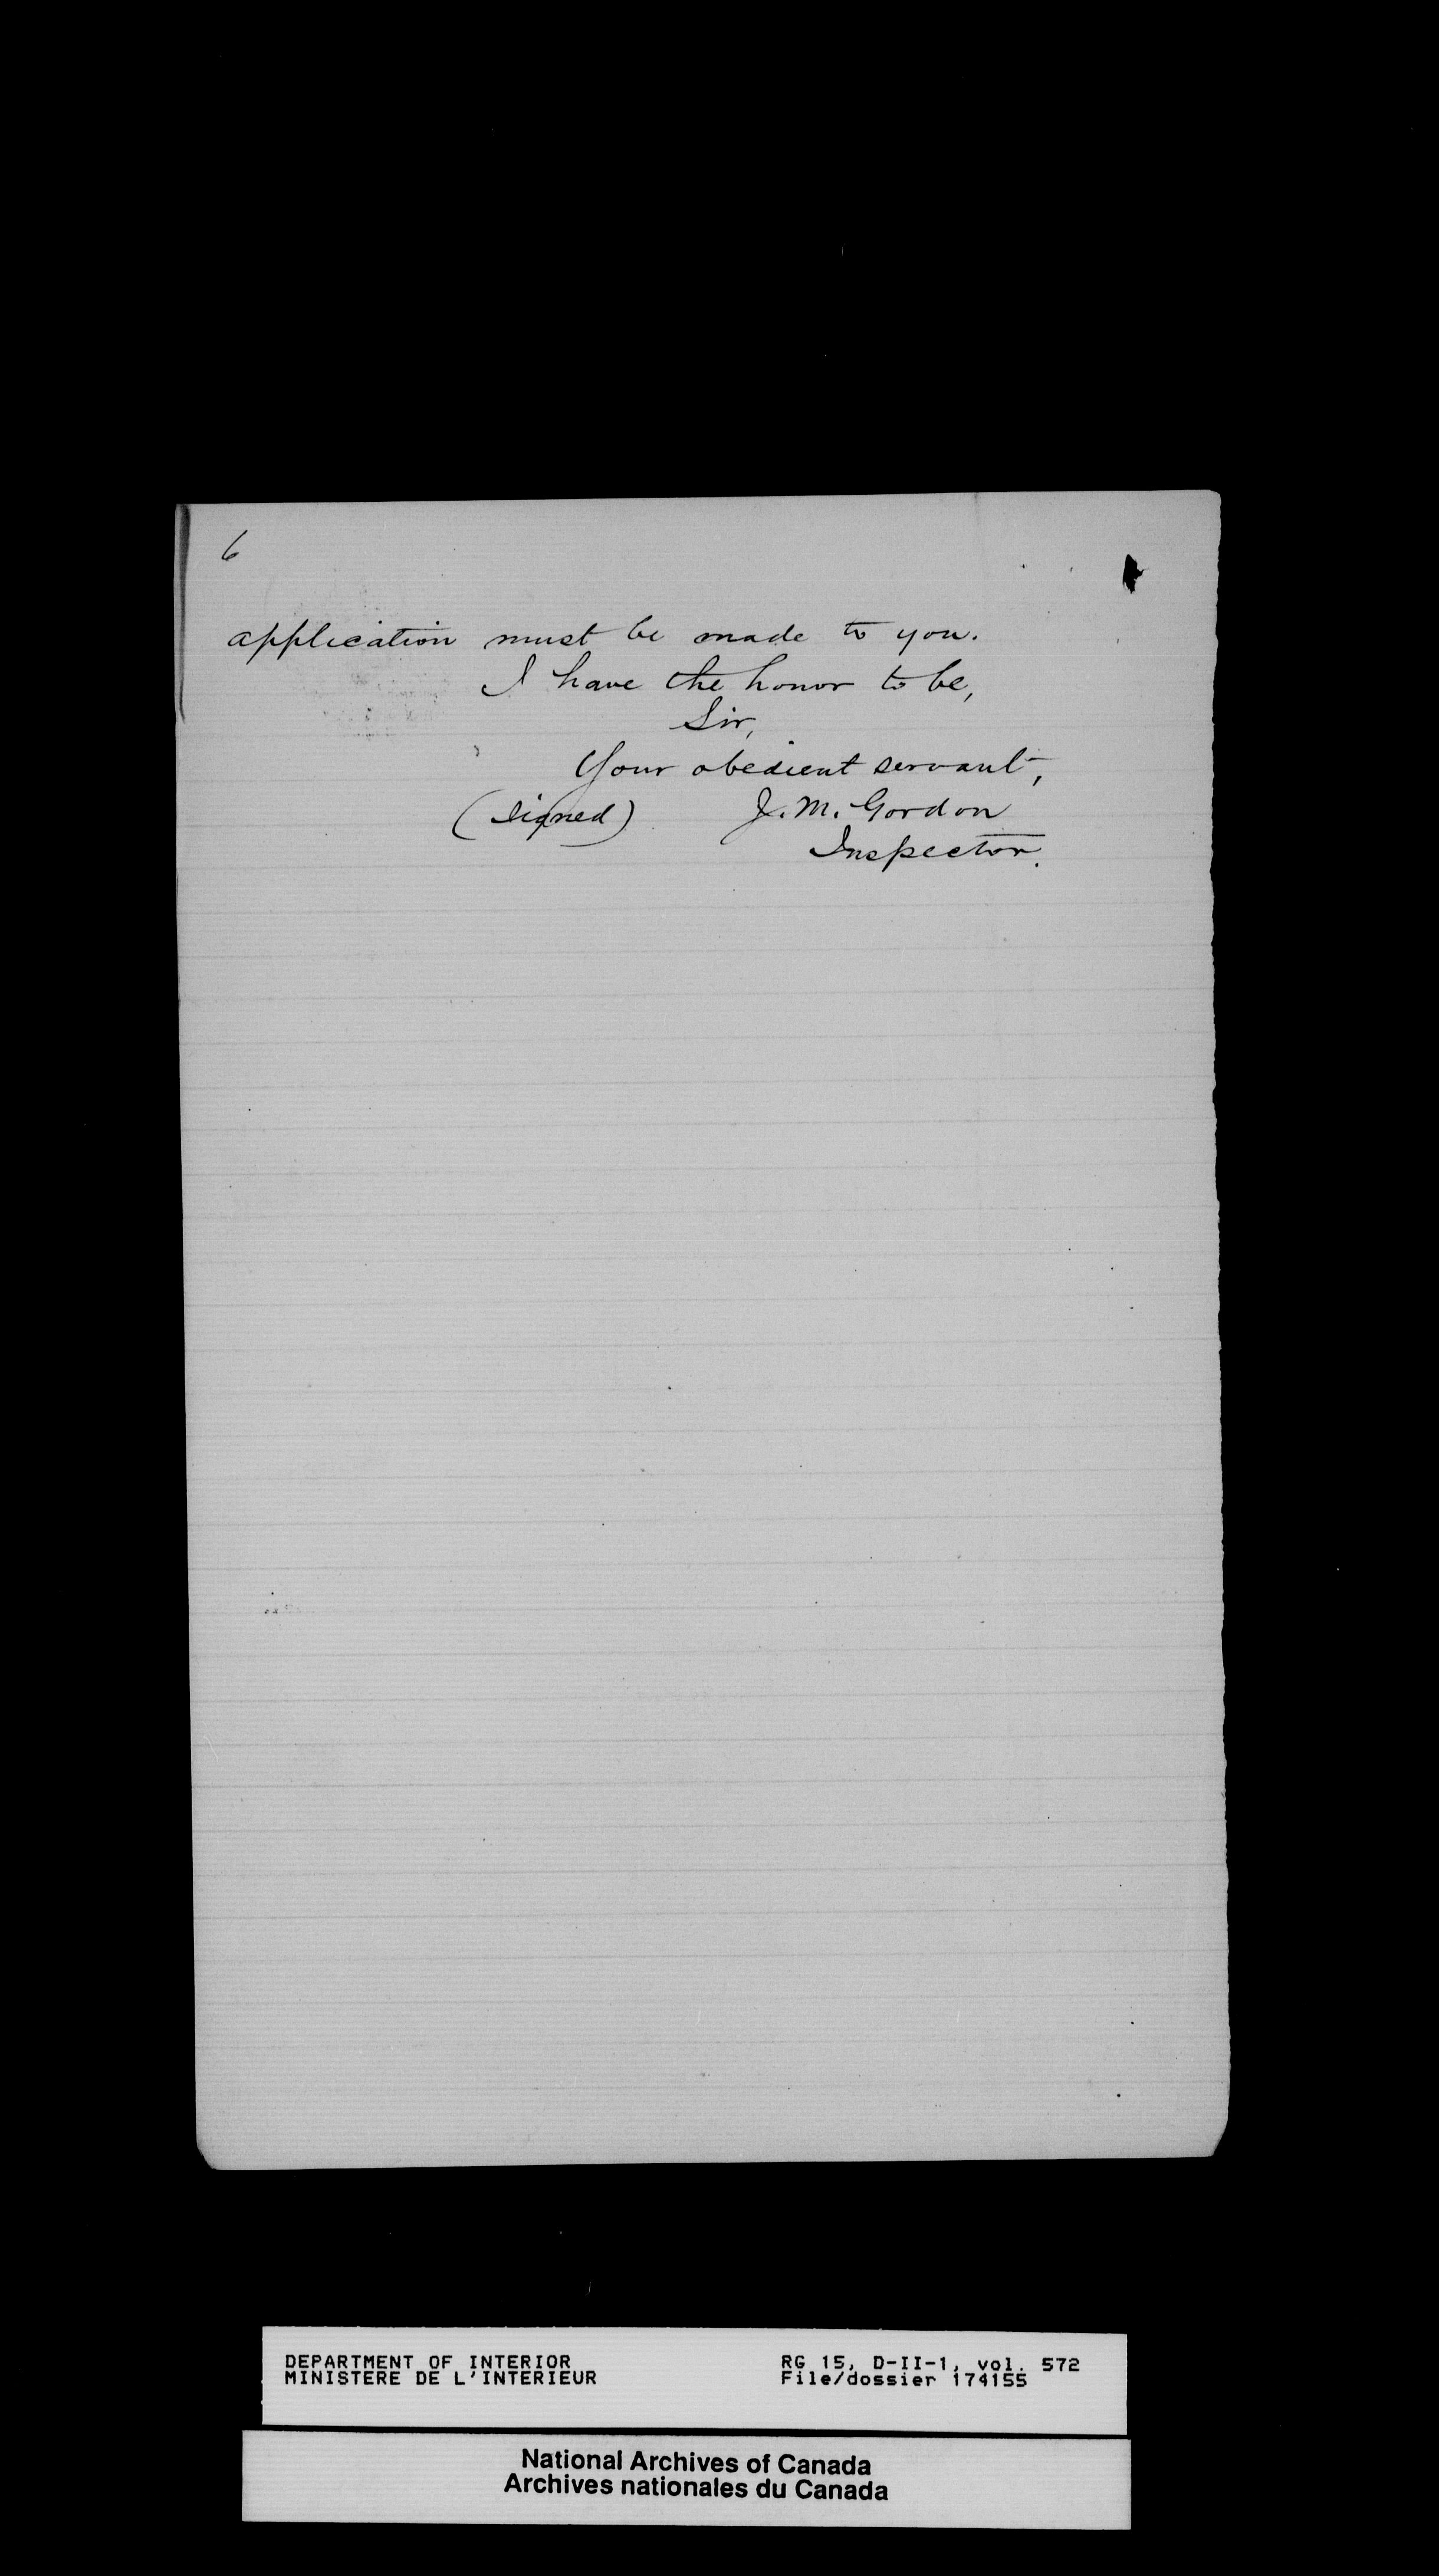 6
application must be made to you.
I have the honor to be,
Sir,
Your obedient servant,
(signed) J. M. Gordon
Inspector.
DEPARTMENT OF INTERIOR
MINISTERE DE L'INTERIEUR
RG 15, D-II-1, vol. 572
File/dossier 174155
National Archives of Canada
Archives nationales du Canada